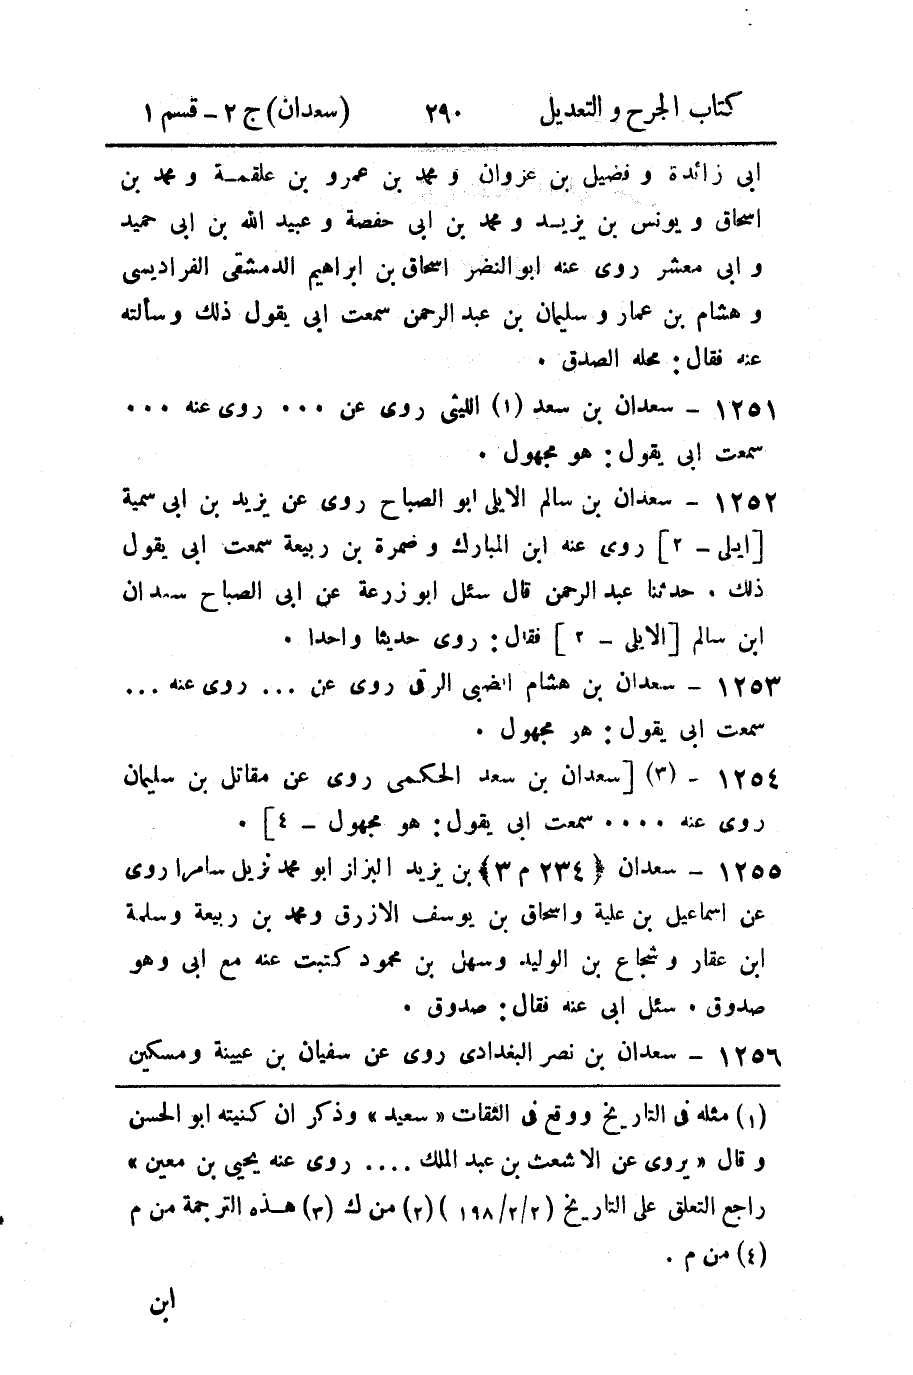 كتاب الجرح و التعديل ٢٩٠ (سعدان) ج ٢ - قسم ١
ابى زائدة و فضيل بن غزوان و محمد بن عمرو بن علقمة و محمد بن
اسحاق و يونس بن يزيد و محمد بن ابى حفصة و عبيد الله بن ابى حميد
و ابى معشر روى عنه ابو النضر اسحاق بن ابراهيم الدمشقى الفراديسى
و هشام بن عمار و سليمان بن عبد الرحمن سمعت ابى يقول ذلك و سألته
عنه فقال: محله الصدق .
١٢٥١ - سعدان بن سعد (١) الليثى روى عن ... روى عنه ...
سمعت ابى يقول: هو مجهول .
١٢٥٢ - سعدان بن سالم الايلى ابو الصباح روى عن يزيد بن ابى سمية
[ايلى - ٢] روى عنه ابن المبارك و ضمرة بن ربيعة سمعت ابى يقول
ذلك . حدثنا عبد الرحمن قال سئل ابو زرعة عن ابى الصباح سعدان
ابن سالم [الايلى - ٢] فقال: روى حديثا واحدا .
١٢٥٣ - سعدان بن هشام الضبى الرقى روى عن ... روى عنه ...
سمعت ابى يقول: هو مجهول .
١٢٥٤ - (٣) [سعدان بن سعد الحكمى روى عن مقاتل بن سليمان
روى عنه .... سمعت ابى يقول: هو مجهول - ٤] .
١٢٥٥ - سعدان ﴿٢٣٤ م ٣﴾ بن يزيد البزاز ابو محمد نزيل سامرا روى
عن اسماعيل بن علية واسحاق بن يوسف الازرق ومحمد بن ربيعة وسلمة
ابن عقار و شجاع بن الوليد وسهل بن محمود كتبت عنه مع ابى وهو
صدوق . سئل ابى عنه فقال: صدوق .
١٢٥٦ - سعدان بن نصر البغدادى روى عن سفيان بن عيينة ومسكين
(١) مثله فى التاريخ ووقع فى الثقات « سعيد » وذكر ان كنيته ابو الحسن
و قال « يروى عن الاشعث بن عبد الملك .... روى عنه يحيى بن معين »
راجع التعلق على التاريخ (١٩٨/٢/٢) (٢) من ك (٣) هذه الترجمة من م
(٤) من م .
ابن